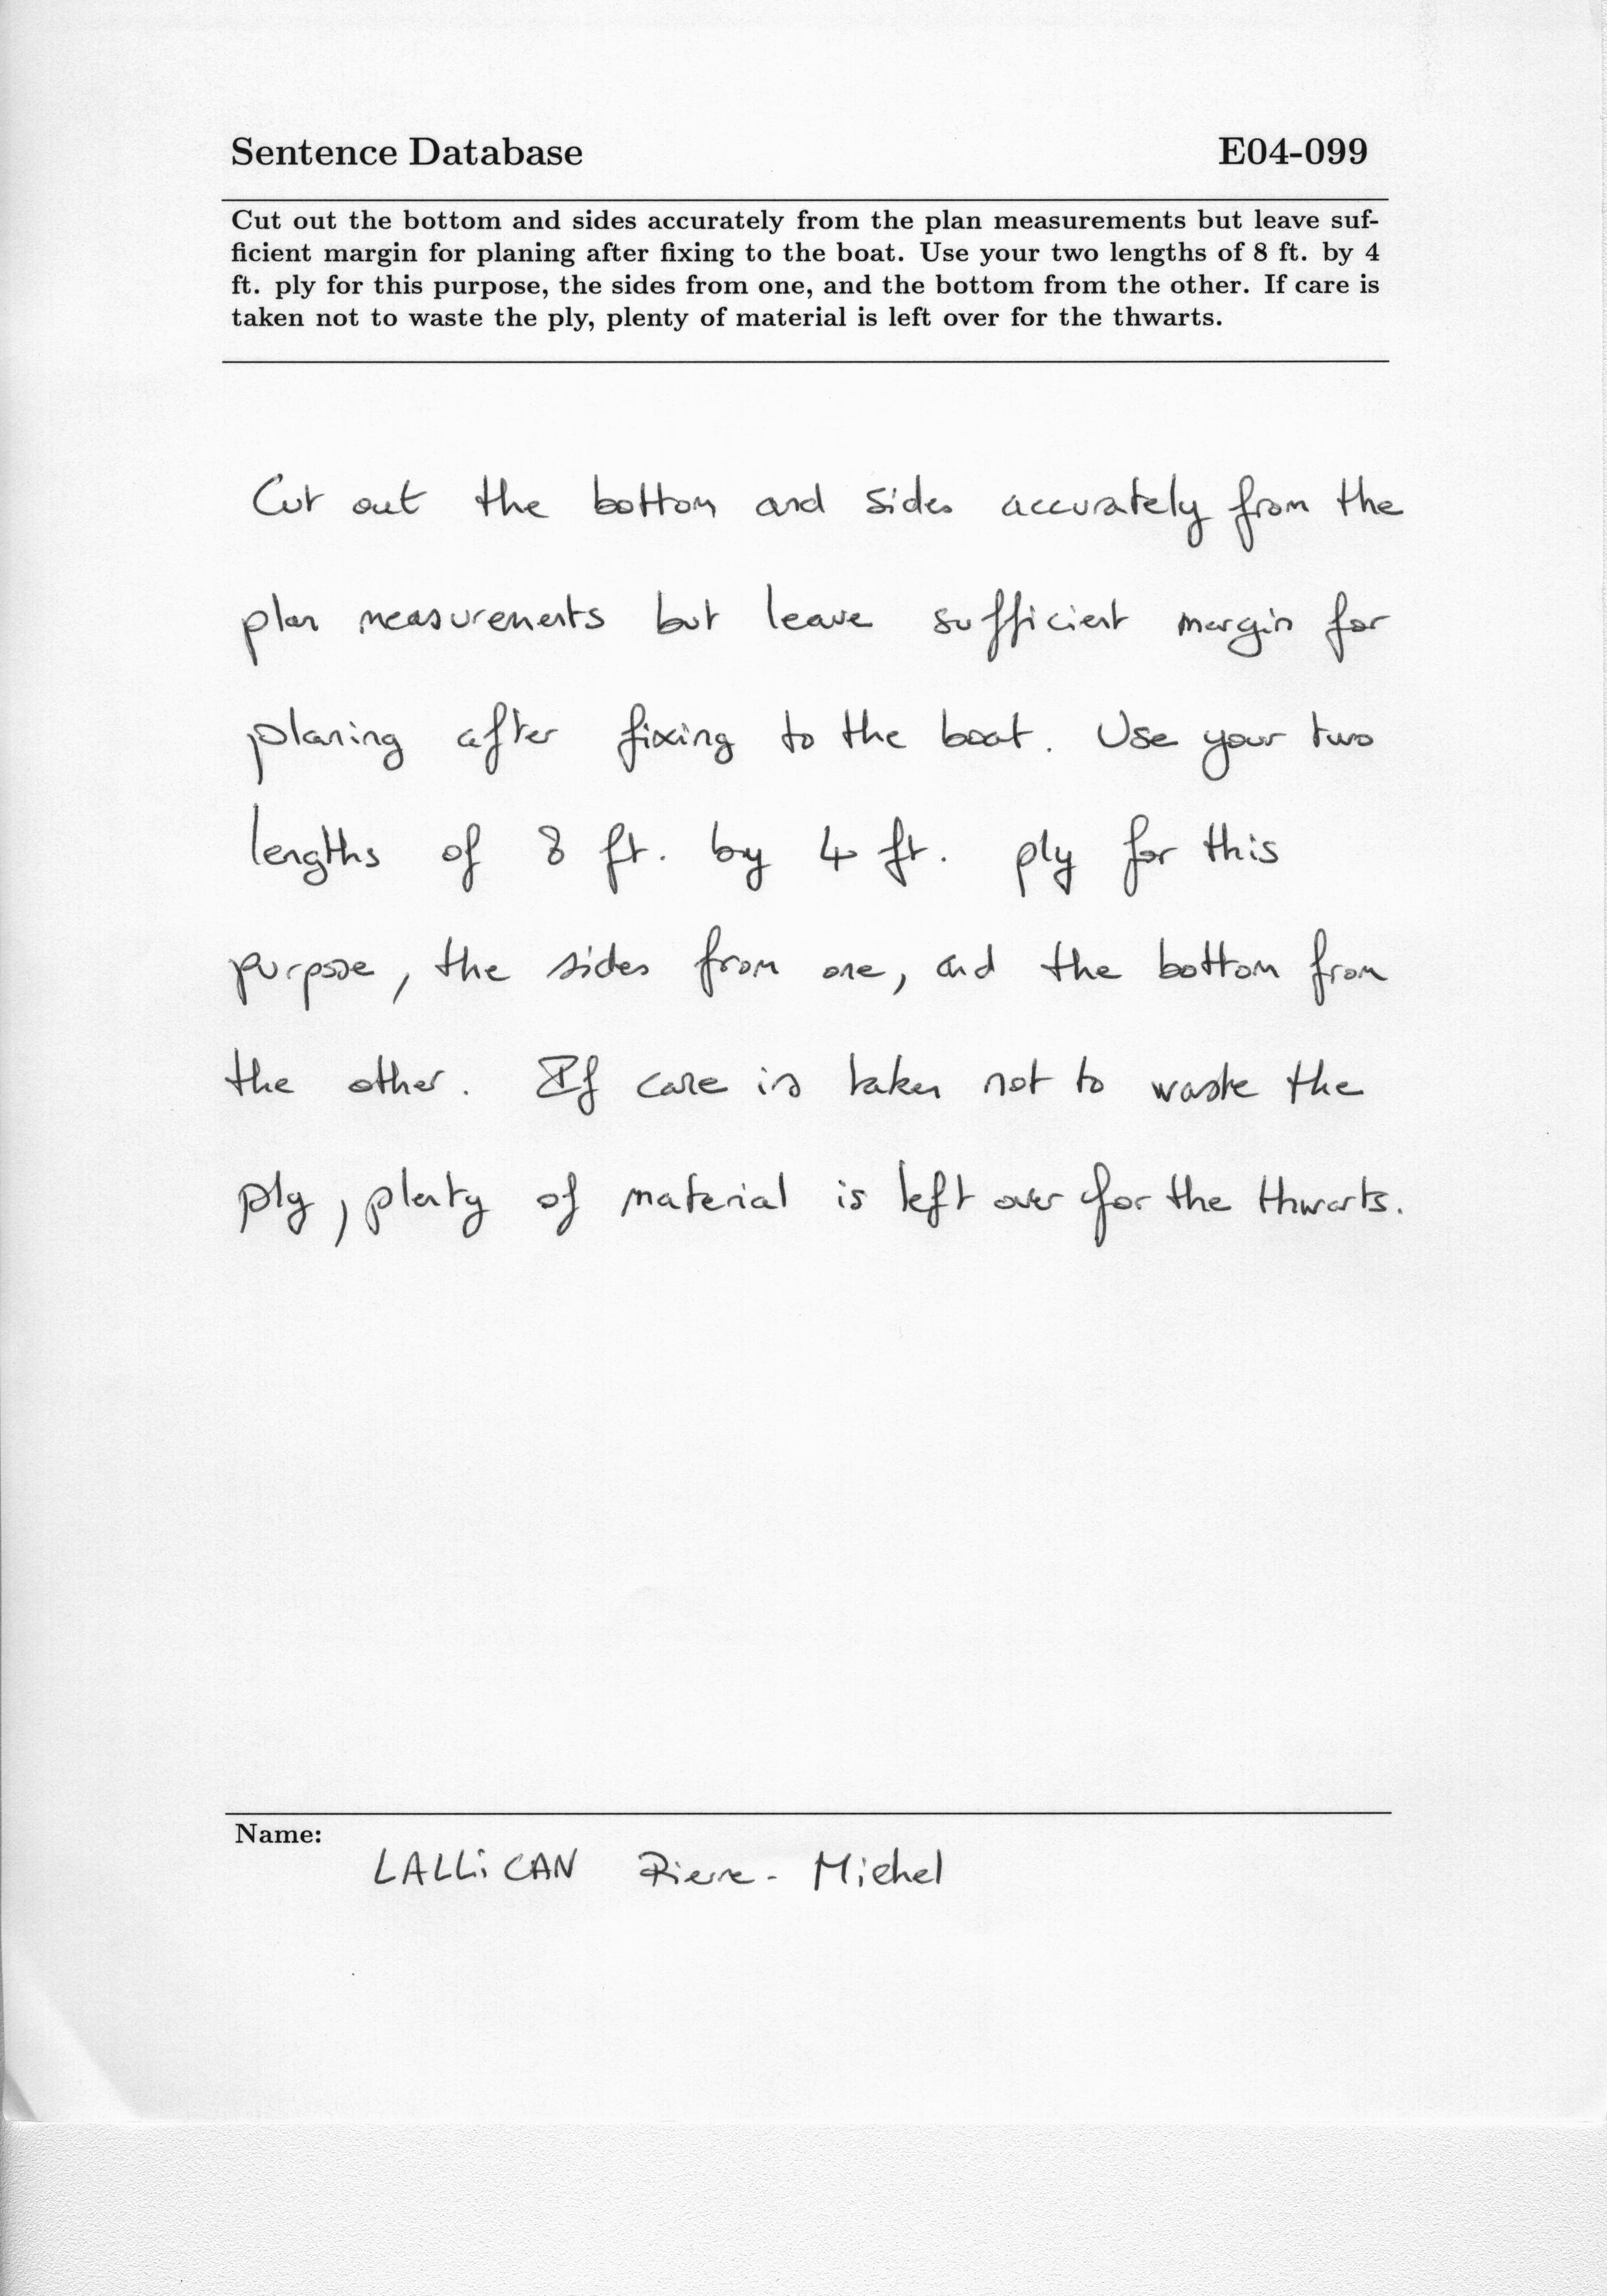 Sentence Database E04-099
Cut out the bottom and sides accurately from the plan measurements but leave suf-
ficient margin for planing after fixing to the boat. Use your two lengths of 8 ft. by 4
ft. ply for this purpose, the sides from one, and the bottom from the other. If care is
taken not to waste the ply, plenty of material is left over for the thwarts.
Cut out the bottom and sides accurately from the
plan measurements but leave sufficient margin for
planing after fixing to the boat. Use your two
lengths of 8 ft. by 4 ft. ply for this
purpose, the sides from one, and the bottom from
the other. If care is taken not to waste the
ply, plenty of material is left over for the thwarts.
Name:
LALLiCAN Pierre-Michel